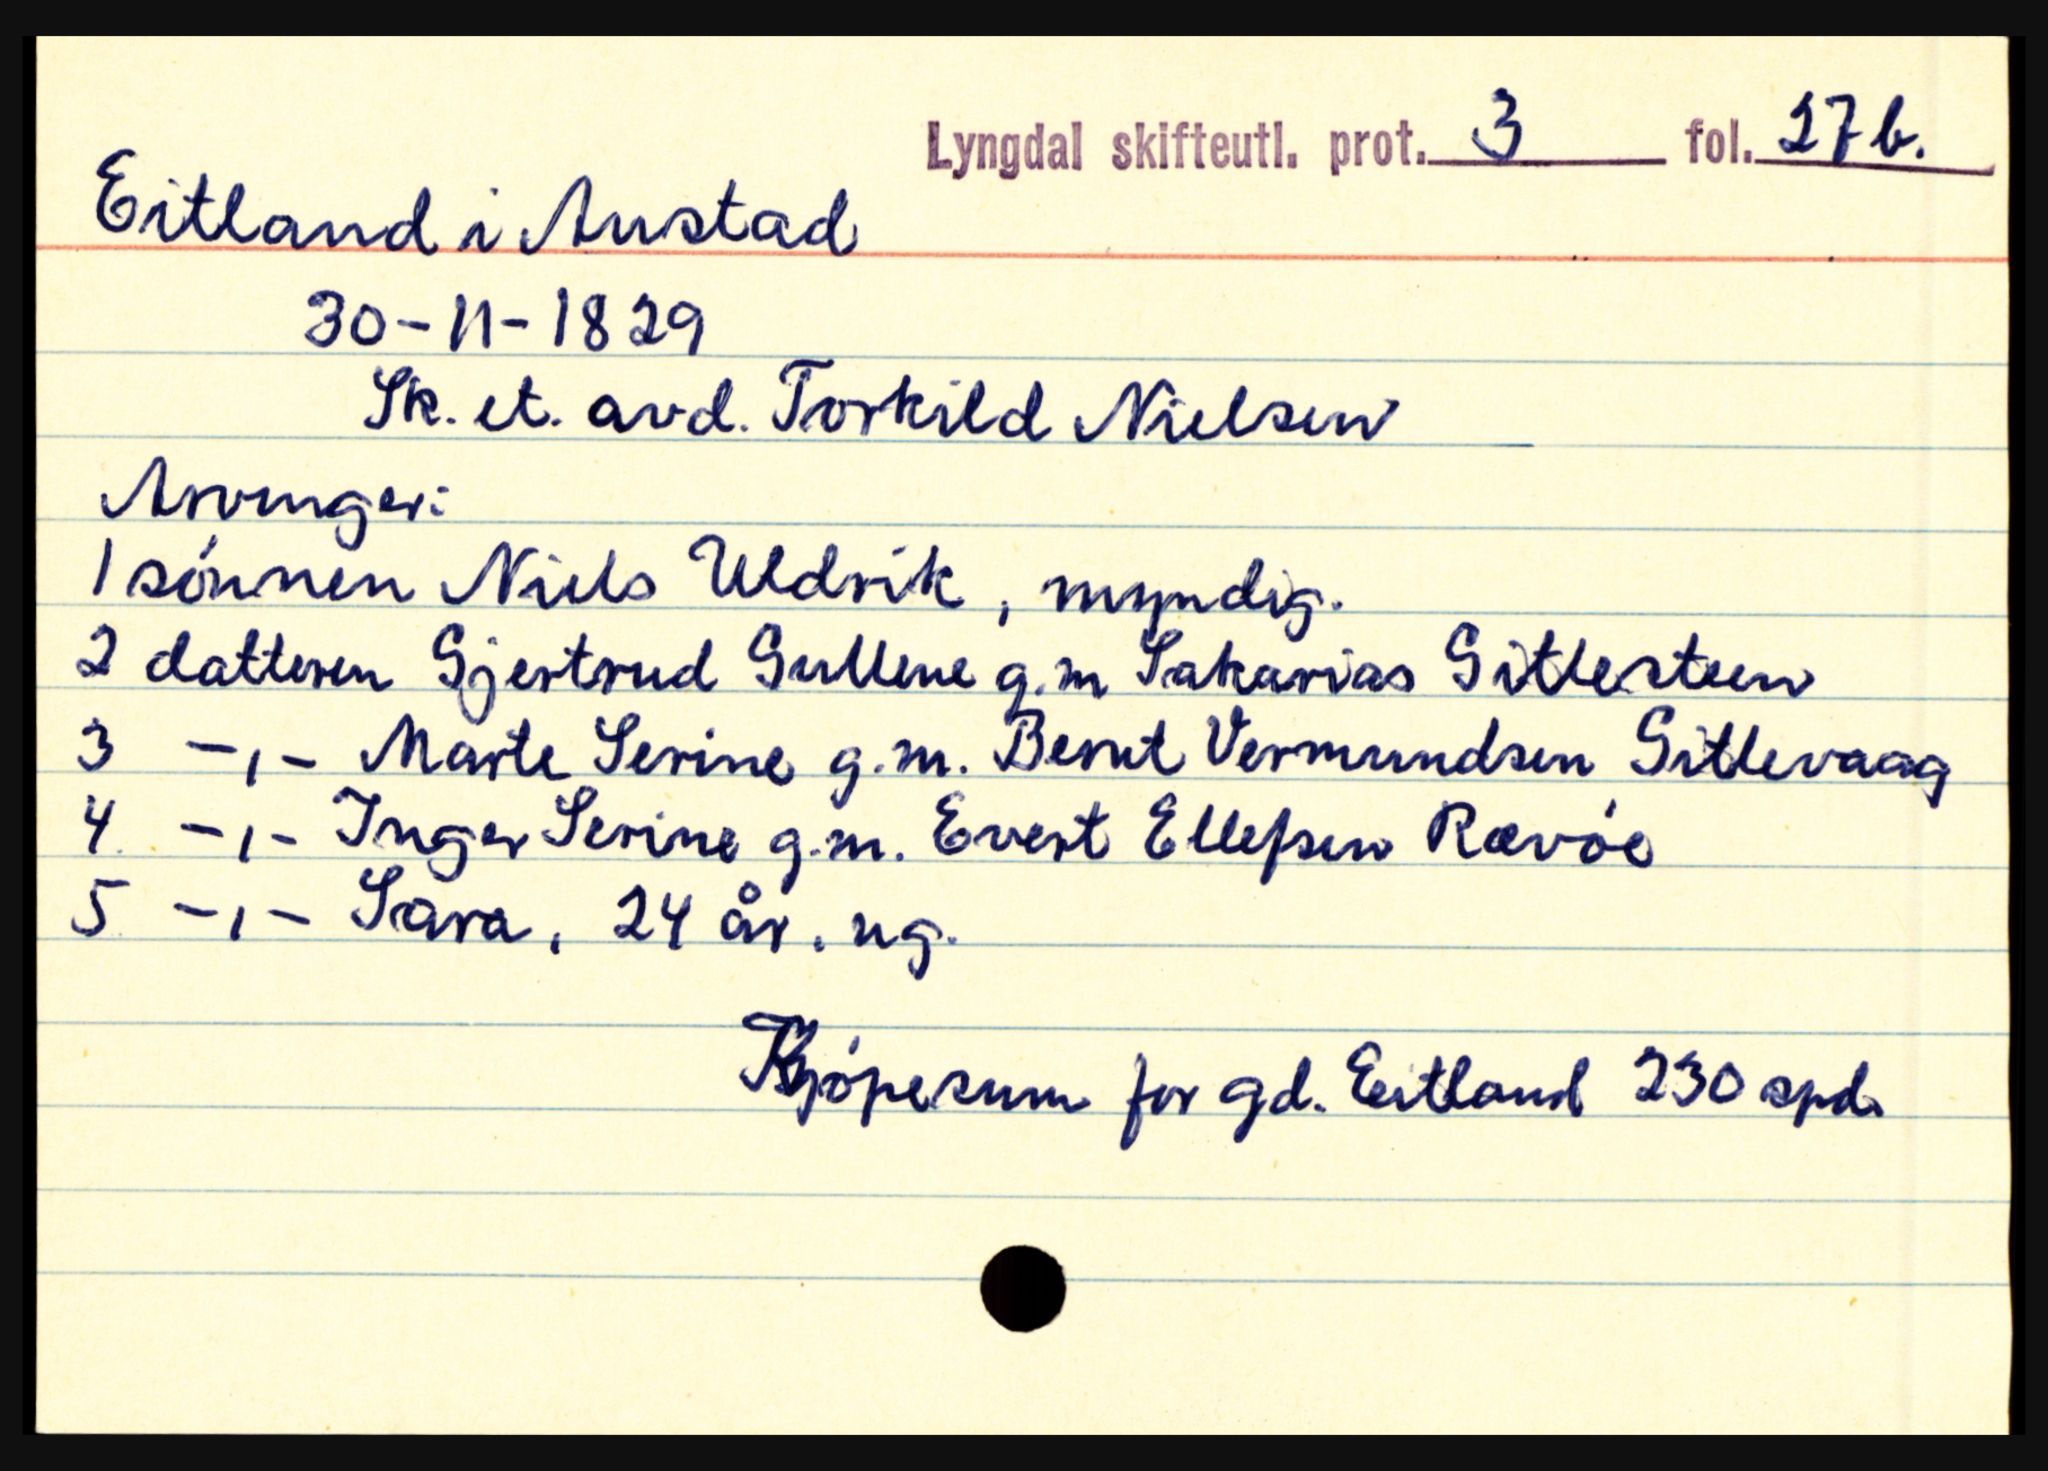 Lyngdal skifteutl. prot. 3 fol. 27 b.
Eitland i Austad
30-11-1829
Sk. et. avd. Torkild Nielsen
Arvinger:
1 sónnen Niels Uldrik, myndig.
2 datteren Gjertrud Gullene g.m Sakarias Gitlesteen
3 -,- Marte Serine g.m. Bernt Vermundsen Gitlevaag
4. -,- Inger Serine g.m. Evert Ellefsen Rævóe
5. -,- Sara, 24 år. ug.
Kjópesum for gd. Eitland 230 spd.